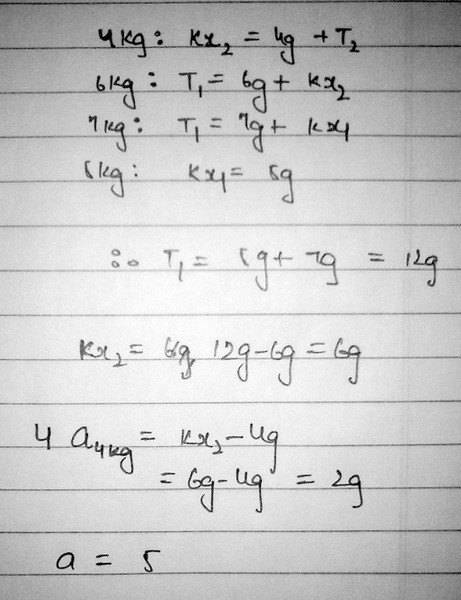 4kg: kx₂ = 4g + T₂
6kg: T₁ = 6g + kx₂
7kg: T₁ = 7g + kx₁
5kg: kx₁ = 5g
∴ T₁ = 5g + 7g = 12g
kx₂ = 12g - 6g = 6g
4 a₄kg = kx₂ - 4g
= 6g - 4g = 2g
a = 5